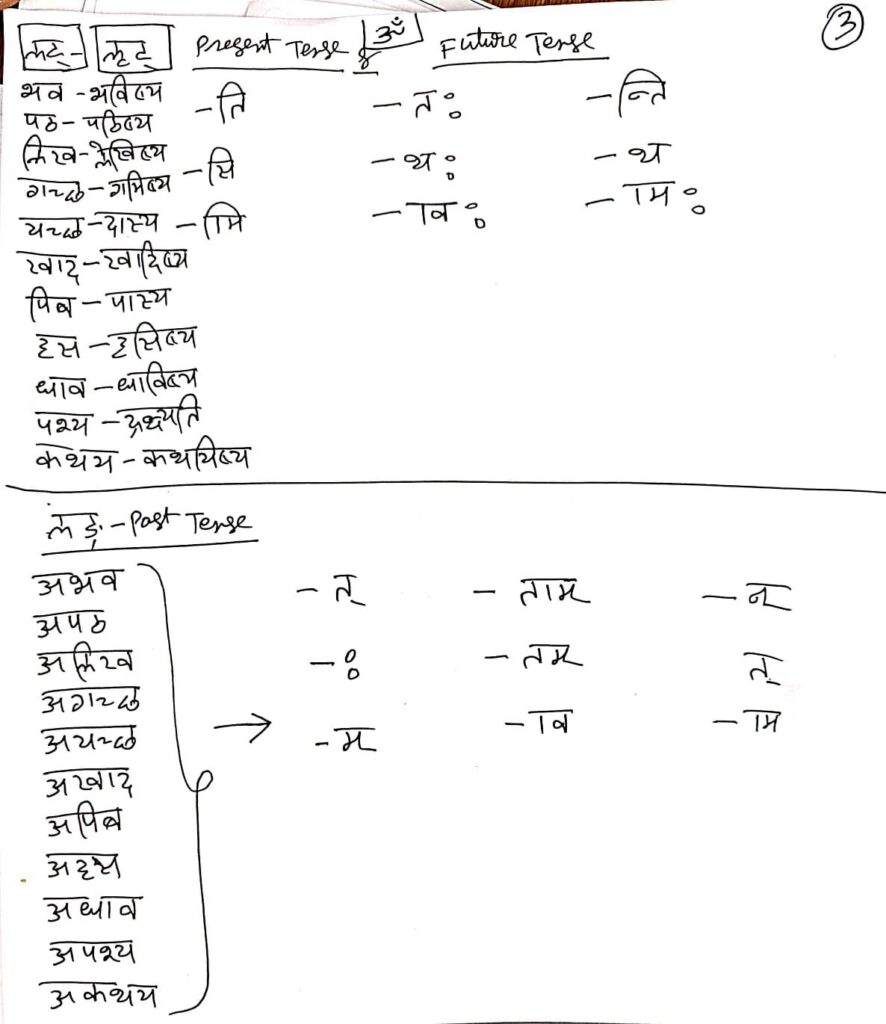 3
लट् - लृट् Present Tense & ॐ Future Tense
भव - भविष्य - ति - तः - न्ति
पठ - पठिष्य
लिख - लेखिष्य - सि - थः - थ
गच्छ - गमिष्य
यच्छ - दास्य - ामि - ावः - ामः
खाद् - खादिष्य
पिब - पास्य
हस - हसिष्य
धाव - धाविष्य
पश्य -
कथय - कथयिष्य
लङ् - Past Tense
अभव - त् - ताम् - न्
अपठ
अलिख - ः - तम् त्
अगच्छ
अयच्छ → - म् - ाव - ाम
अखाद्
अपिब
अहस
अधाव
अपश्य
अकथय